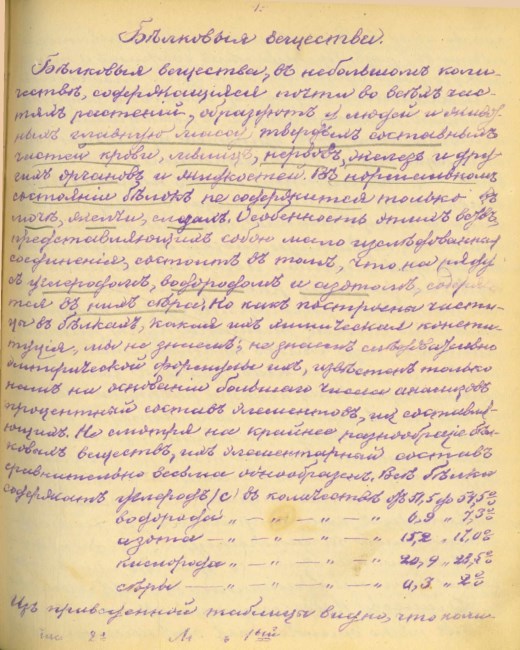 1.
Бѣлковыя вещества.
Бѣлковыя вещества, въ небольшомъ коли-
чествѣ, содержащіяся почти во всѣхъ час-
тяхъ растеній, образуютъ у людей и живот-
ныхъ главную массу твердыхъ составныхъ
частей крови, мышцъ, нервовъ, железъ и дру-
гихъ органовъ и жидкостей. Въ нормальномъ
состояніи бѣлокъ не содержится только въ
мочѣ, желчи, слезахъ. Особенность этихъ вещ.,
представляющихъ собою мало изслѣдованныя
соединенія, состоитъ въ томъ, что на ряду
съ углеродомъ, водородомъ и азотомъ, содержи-
тся въ нихъ сѣра. Но какъ построена части-
ца въ бѣлкахъ, какая ихъ химическая консти-
туція, мы не знаемъ; не знаемъ слѣдовательно
эмпирической формулы ихъ, извѣстенъ только
намъ на основаніи большаго числа анализовъ
процентный составъ элементовъ, ихъ составля-
ющихъ. Не смотря на крайнее разнообразіе бѣл-
ковыхъ веществъ, ихъ элементарный составъ
сравнительно весьма однообразенъ. Всѣ бѣлки
содержатъ углеродъ (С) въ количествѣ 51,5 до 54,5%
водорода „ — „ — „ — „ 6,9 „ 7,3%
азота — „ — „ — „ — „ 15,2 „ 17,0%
кислорода „ — „ — „ — „ 20,9 „ 23,5%
сѣры — „ — „ — „ — „ 0,3 „ 2%
Изъ приведенной таблицы видно, что коли-